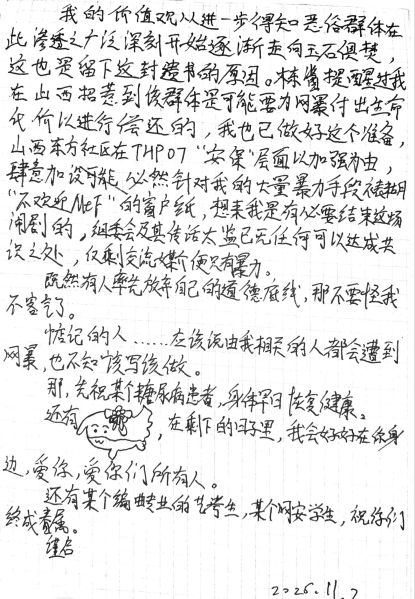 我的价值观以进一步得知恶俗群体在
此渗透之广泛深刻开始逐渐走向玉石俱焚,
这也是留下这封遗书的原因。林酱提醒过我
在山西招惹到该群体是可能要为网暴付出生命
代价以进行偿还的,我也已做好这个准备,
山西东方社区在THP07“安保”层面以加强为由,
肆意加设可能、必然针对我的大量暴力手段不表明
“不欢迎Mef”的窗户纸,想来我是有必要结束这场
闹剧的。组委会及其传话太监已无任何可以达成共
识之处,仅剩交流媒介便只有暴力。
既然有人率先放弃自己的道德底线,那不要怪我
不客气了。
惦记的人……应该说由我相关的人都会遭到
网暴,也不知该写该做。
那,先祝某个糖尿病患者,身体早日恢复健康。
还有 ,在剩下的日子里,我会好好在你身
边,爱你,爱你们所有人。
还有某个编曲专业的艺考生,某个网安学生,祝你们
终成眷属。
谨启
2025.11.2